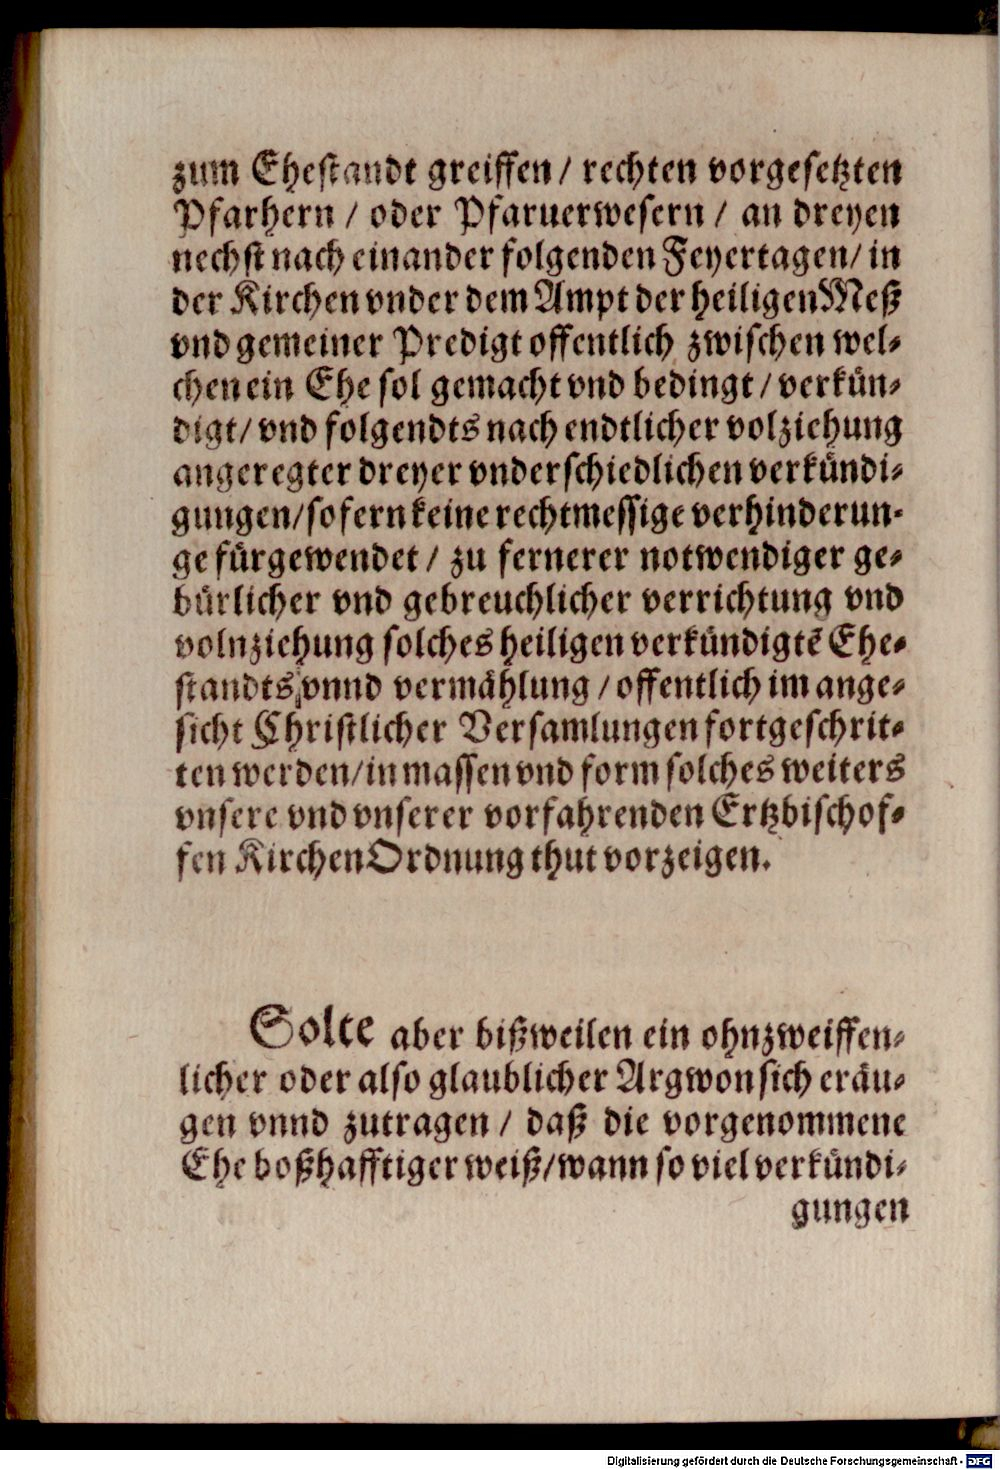 zum Ehestandt greiffen / rechten vorgesetzten
Pfarhern / oder Pfaruerwesern / an dreyen
nechst nach einander folgenden Feyertagen / in
der Kirchen vnder dem Ampt der heiligen Meß
vnd gemeiner Predigt offentlich zwischen wel-
chen ein Ehe sol gemacht vnd bedingt / verkün-
digt / vnd folgendts nach endtlicher volziehung
angeregter dreyer vnderschiedlichen verkündi-
gungen / so fern keine rechtmessige verhinderun-
ge fürgewendet / zu fernerer notwendiger ge-
bürlicher vnd gebreuchlicher verrichtung vnd
volnziehung solches heiligen verkündigtē Ehe-
standts, vnnd vermählung / offentlich im ange-
sicht Christlicher Versamlungen fortgeschrit-
ten werden / in massen vnd form solches weiters
vnsere vnd vnserer vorfahrenden Ertzbischof-
fen Kirchen Ordnung thut vorzeigen.
Solte aber bißweilen ein ohnzweiffen-
licher oder also glaublicher Argwon sich eräu-
gen vnnd zutragen / daß die vorgenommene
Ehe boßhafftiger weiß / wann so viel verkündi-
gungen
Digitalisierung gefördert durch die Deutsche Forschungsgemeinschaft - DFG